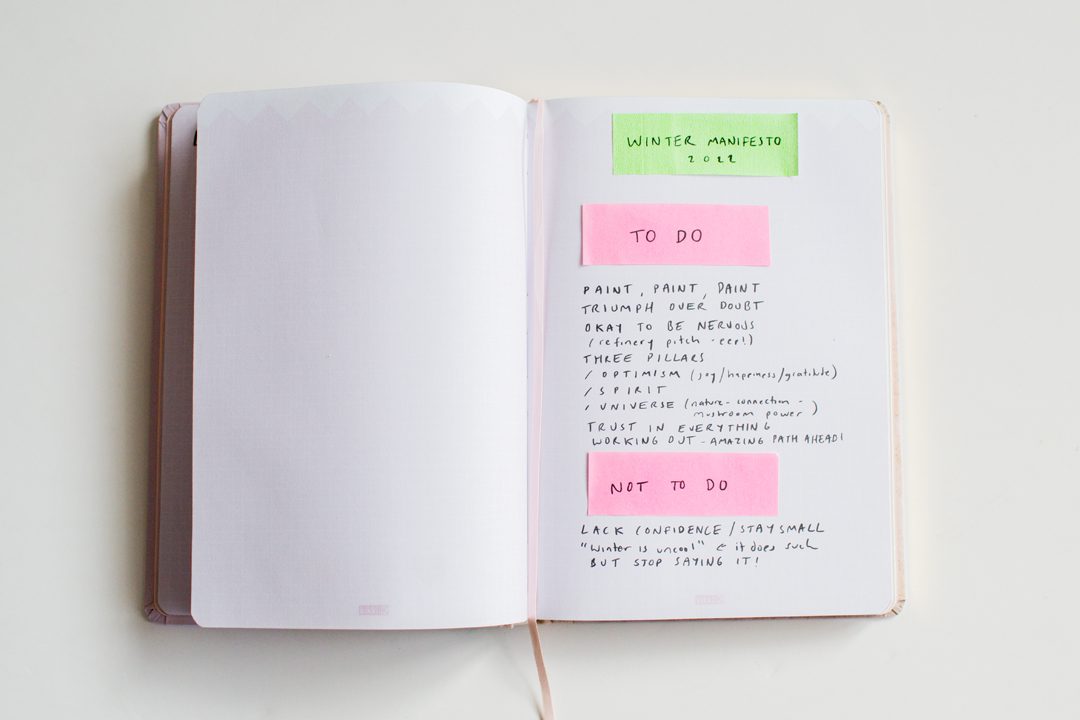 WINTER MANIFESTO
2022
TO DO
PAINT, PAINT, PAINT
TRIUMPH OVER DOUBT
OKAY TO BE NERVOUS
(refinery pitch - eep!)
THREE PILLARS
/ OPTIMISM (joy/happiness/gratitude)
/ SPIRIT
/ UNIVERSE (nature - connection -
mushroom power )
TRUST IN EVERYTHING
WORKING OUT - AMAZING PATH AHEAD!
NOT TO DO
LACK CONFIDENCE / STAY SMALL
"Winter is uncool" & it does such
BUT STOP SAYING IT!